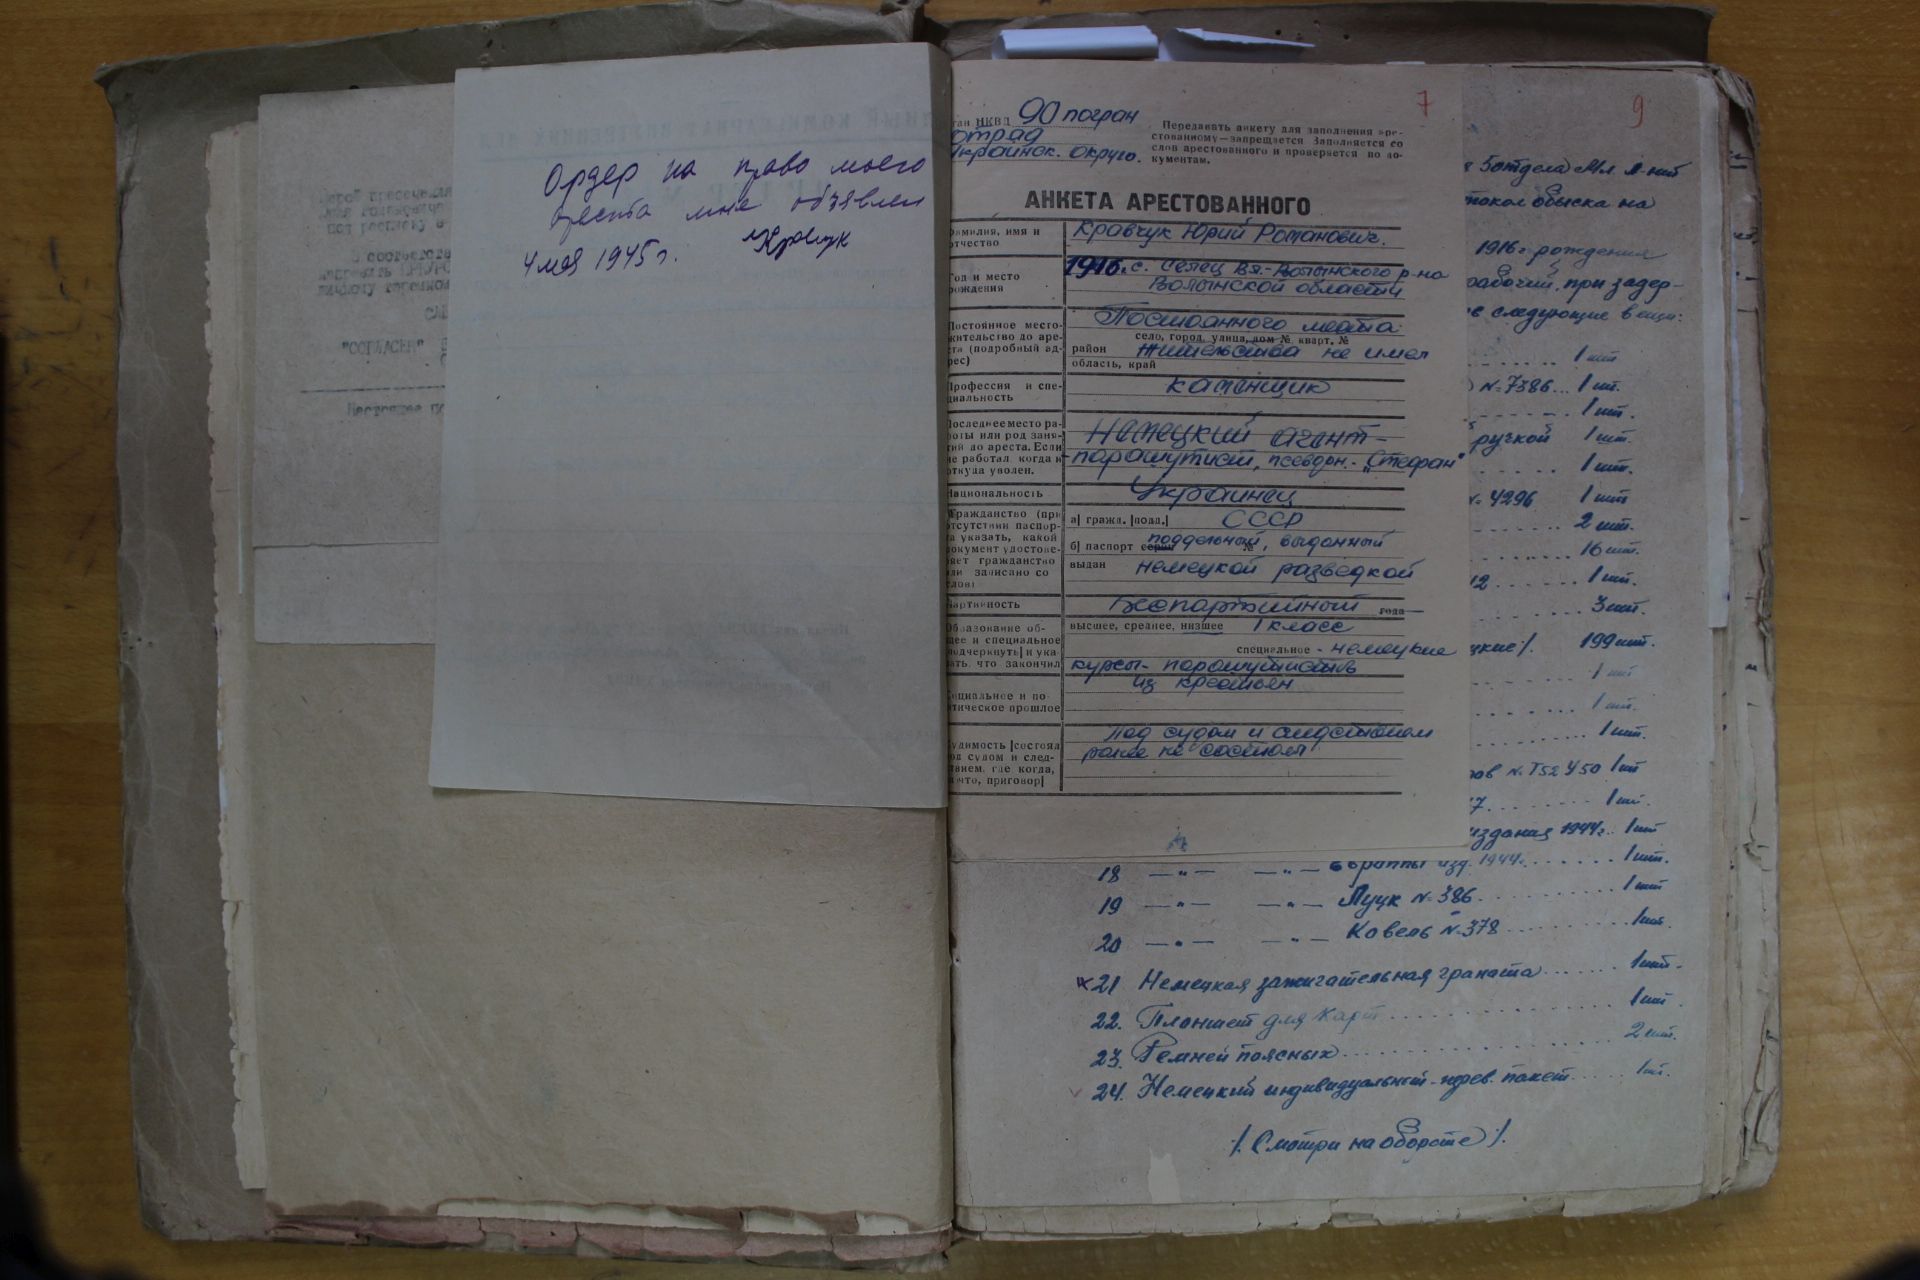 Ордер на право моего
ареста мне объявлен
4 мая 1945 г. Кравчук
7
ган НКВД 90 погран
отряд
Украинск. округа.
Передавать анкету для заполнения аре-
стованному—запрещается Заполняется со
слов арестованного и проверяется по до-
кументам.
АНКЕТА АРЕСТОВАННОГО
Фамилия, имя и
отчество
Кравчук Юрий Романович.
Год и место
рождения
1916 г. с. Селец Вл.-Волынского р-на
Волынской области
Постоянное место-
жительство до аре-
ста (подробный ад-
рес)
Постоянного места
село, город, улица, дом № кварт. №
район жительства не имел
область, край
Профессия и спе-
циальность
каменщик
Последнее место ра-
боты или род заня-
тий до ареста. Если
не работал, когда и
откуда уволен.
Немецкий агент-
-парашутист, псевдон.- „Стефан"
Национальность
Украинец
Гражданство (при
отсутствии паспор-
та указать, какой
документ удостове-
ряет гражданство
или записано со
слов)
а) гражд. (подд.) СССР
б) паспорт серия № поддельный, выданный
выдан немецкой разведкой
Партийность
Беспартийный года
Образование об-
щее и специальное
(подчеркнуть) и ука-
зать, что закончил
высшее, среднее, низшее 1 класс
специальное - немецкие
курсы- парашутистов
Социальное и по-
итическое прошлое
из крестьян
Судимость (состоял
под судом и след-
ствием, где когда,
за что, приговор)
Под судом и следствием
ранее не состоял
9
5 отдела Мл. л-нт
токол обыска на
1916 г. рождения
рабочий, при задер-
е следующие вещи:
1 шт
№ 7386... 1 шт.
1 шт.
ручкой 1 шт.
1 шт.
№ 4296 1 шт
2 шт.
16 шт.
12 1 шт.
3 шт.
цкие/. 199 шт.
1 шт
1 шт.
1 шт.
ов № Т52450 1 шт
7. 1 шт.
издания 1944 г. 1 шт
18 —"— —"— изд. 1944 г. 1 шт.
19 —"— —"— Луцк № 386. 1 шт
20 —"— —"— Ковель № 378 1 шт.
21 Немецкая зажигательная граната 1 шт.
22. Планшет для карт 1 шт.
23. Ремней поясных 2 шт.
24. Немецкий индивидуальный перев. пакет 1 шт.
/. Смотри на обороте /.